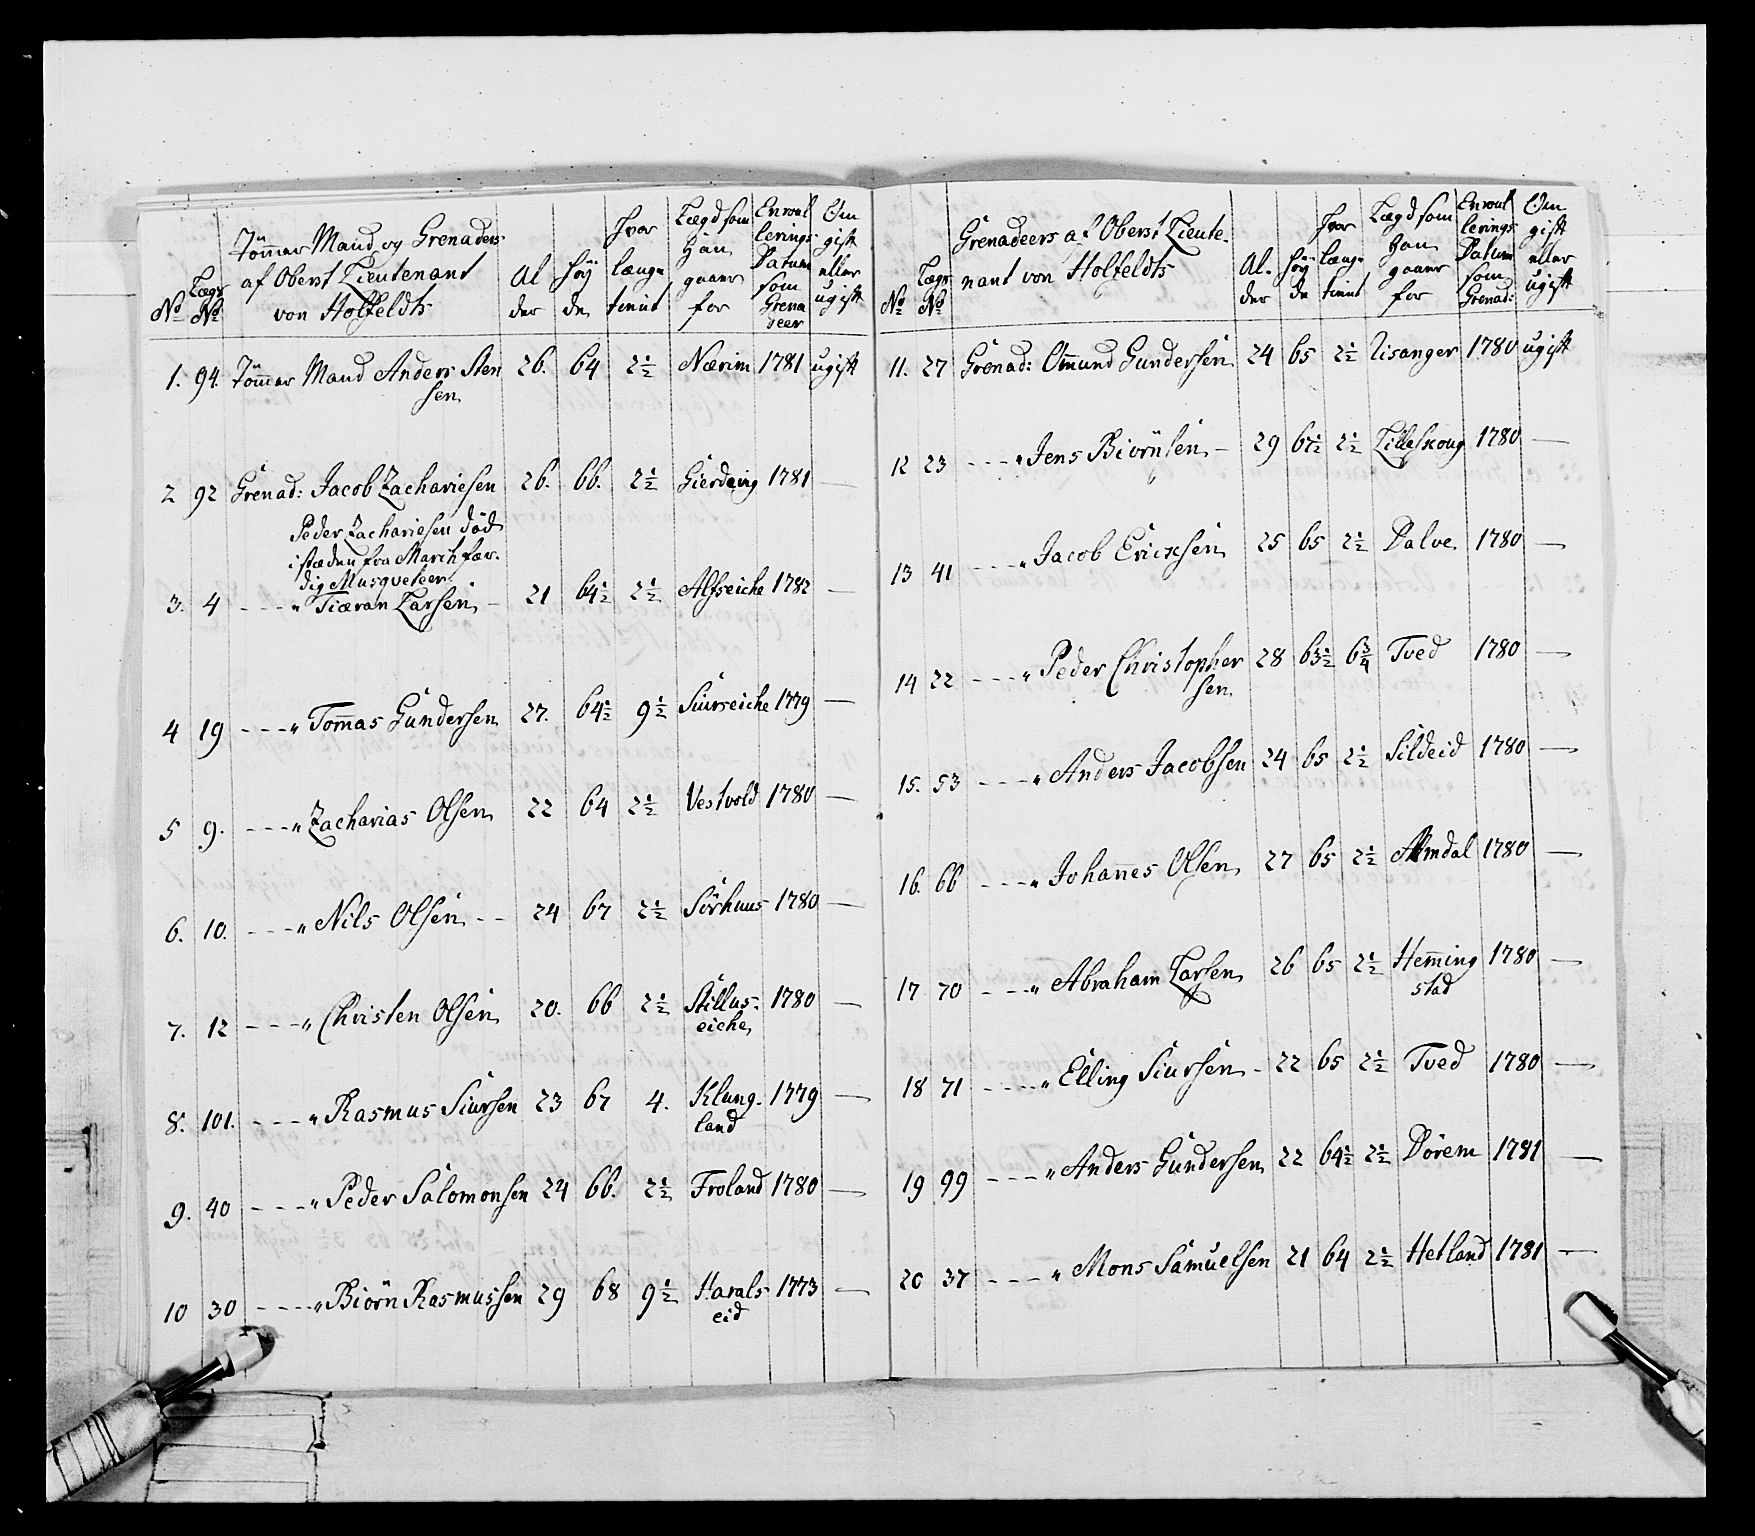 No
Lægs No
Tömmer Mand og Grenaders
af Oberst Lieutenant
von Holfeldts
Al
der
Høy
de
hvor
længe
tient
Lægd som
han
gaaer
for
Enroul
lerings
Datum
som
Grena
deer
Om
gift
eller
ugift
1. 94. Tömmer Mand Anders Sten 26. 64 2½ Nærim 1781 ugift
sen
2 92 Grenad: Jacob Zachariesen 26. 66. 2½ Gierdeig 1781 —
Peder Zachariesen død
i stæden fra March fær-
dig Musqueteer
3. 4 - - - " Tiæran Larsen - 21 64½ 2½ Alfseiche 1782 —
4 19 - - - " Tom̄as Gundersen 27. 64½ 9½ Siurseiche 1779 —
5 9. - - - " Zacharias Olsen 22 64 2½ Vestvold 1780 —
6. 10. - - - " Nils Olsen - - 24 67 2½ Sörhuus 1780 —
7. 12 - - - " Christen Olsen 20. 66 2½ Skillus- 1780 —
eiche
8. 101. - - - " Rasmus Siursen 23 67 4. Klung- 1779 —
land
9. 40 - - - " Peder Salomonsen 24 66. 2½ Froland 1780 —
10 30 - - - " Biörn Rasmussen 29 68 9½ Harals 1773 —
eid
No
Lægs No
Grenadeers af Oberst Lieute-
nant von Holfeldts
Al-
der
Høy
de
hvor
længe
tient
Lægd som
han
gaaer
for
Enroul
lerings
Datum
som
Grenad:
Om
gift
eller
ugift
11. 27 Grenad: Om̄und Gundersen 24 65 2½ Lisanger 1780 ugift
12 23 - - - " Jens Biörnsen - 29 67½ 2½ Lilleskoug 1780 —
13 41 - - - " Jacob Ericksen 25 65 2½ Dalve 1780 —
14 22 - - - " Peder Christopher 28 63½ 6¾ Tved 1780 —
sen
15. 53 - - - " Anders Jacobsen 24 65 2½ Sildeid 1780 —
16. 66 - - - " Johan̄es Olsen 27 65 2½ Almdal 1780 —
17 70 - - - " Abraham Larsen 26 65 2½ Hem̄ing 1780 —
stad
18 71 - - - " Elling Siursen - 22 65 2½ Tved 1780 —
19 99 - - - " Anders Gundersen 22 64½ 2½ Dörem 1781 —
20 37 - - - " Mons Samuelsen 21 64 2½ Hetland 1781 —